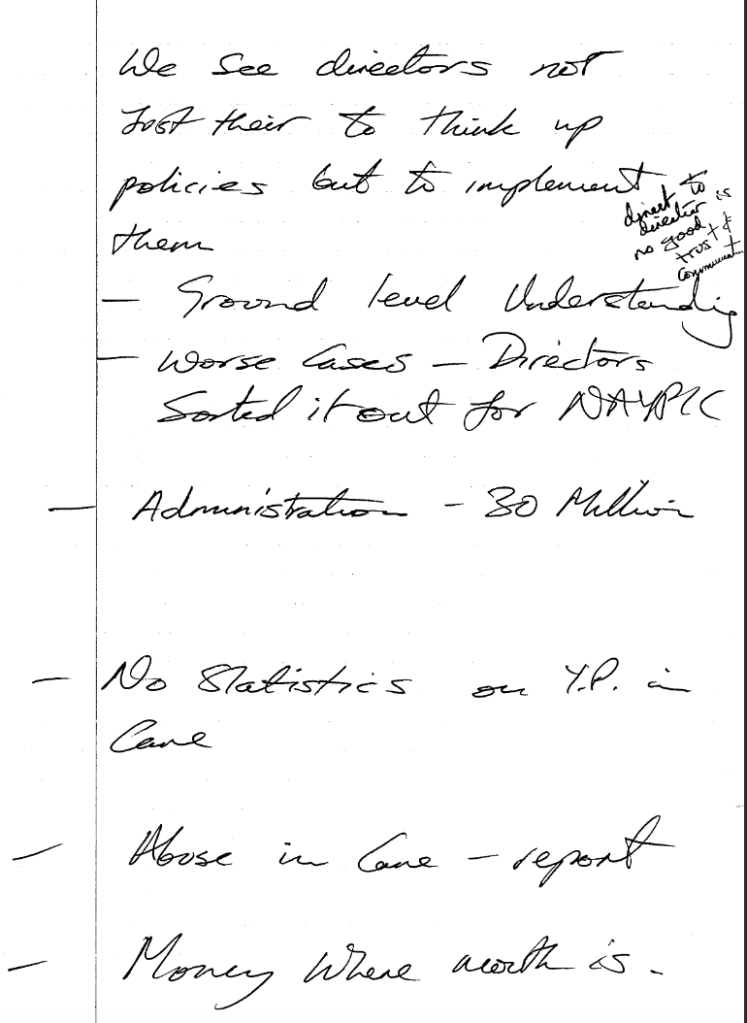 We see directors not
Just their to think up
policies but to implement
them
direct to
director is
no good
trust &
- Ground level Understanding
- Worse Cases - Directors
Sorted it out for NAYPIC
- Administration - 30 Million
- No Statistics on Y.P. in
Care
- Abuse in Care - report
- Money Where mouth is.